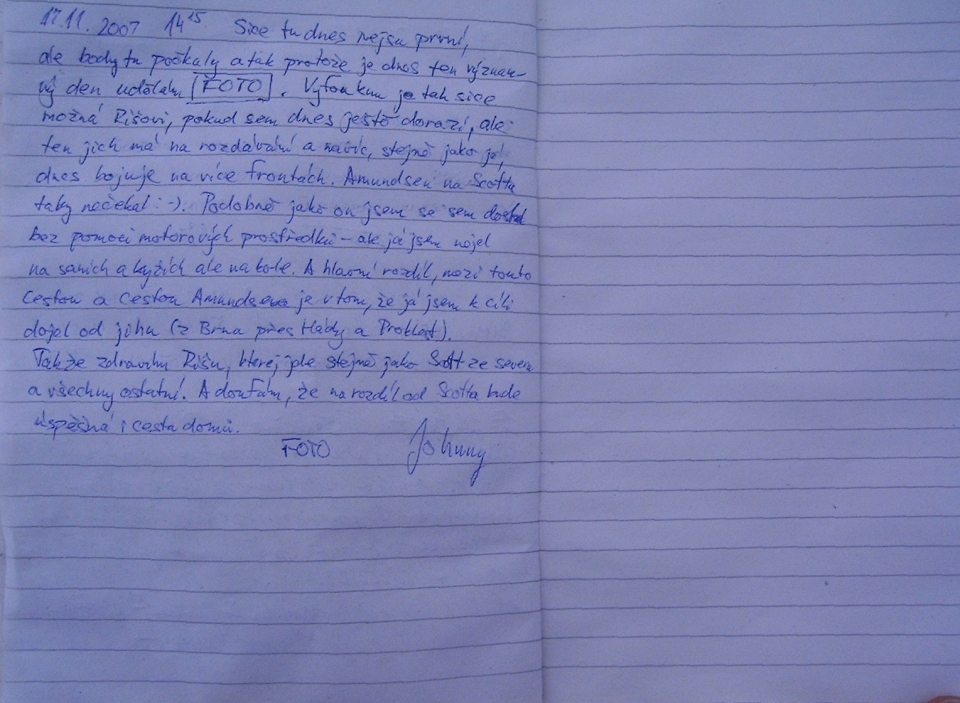 17.11. 2007 14¹⁵ Sice tu dnes nejsu první,
ale body tu počkaly a tak protože je dnes ten význam-
ný den udělám FOTO. Vyfouknu je tak sice
možná Ríšovi, pokud sem dnes ještě dorazí, ale
ten jich má na rozdávání a navíc, stejně jako já,
dnes bojuje na více frontách. Amundsen na Scotta
taky nečekal :-). Podobně jako on jsem se sem dostal
bez pomoci motorových prostředků – ale já jsem nejel
na saních a lyžích ale na kole. A hlavní rozdíl, mezi touto
cestou a cestou Amundsena je v tom, že já jsem k cíli
dojel od jihu (z Brna přes Hády a Proklest).
Takže zdravím Ríšu, kterej jde stejně jako Scott ze severu
a všechny ostatní. A doufám, že na rozdíl od Scotta bude
úspěšná i cesta domů.
FOTO Johnny